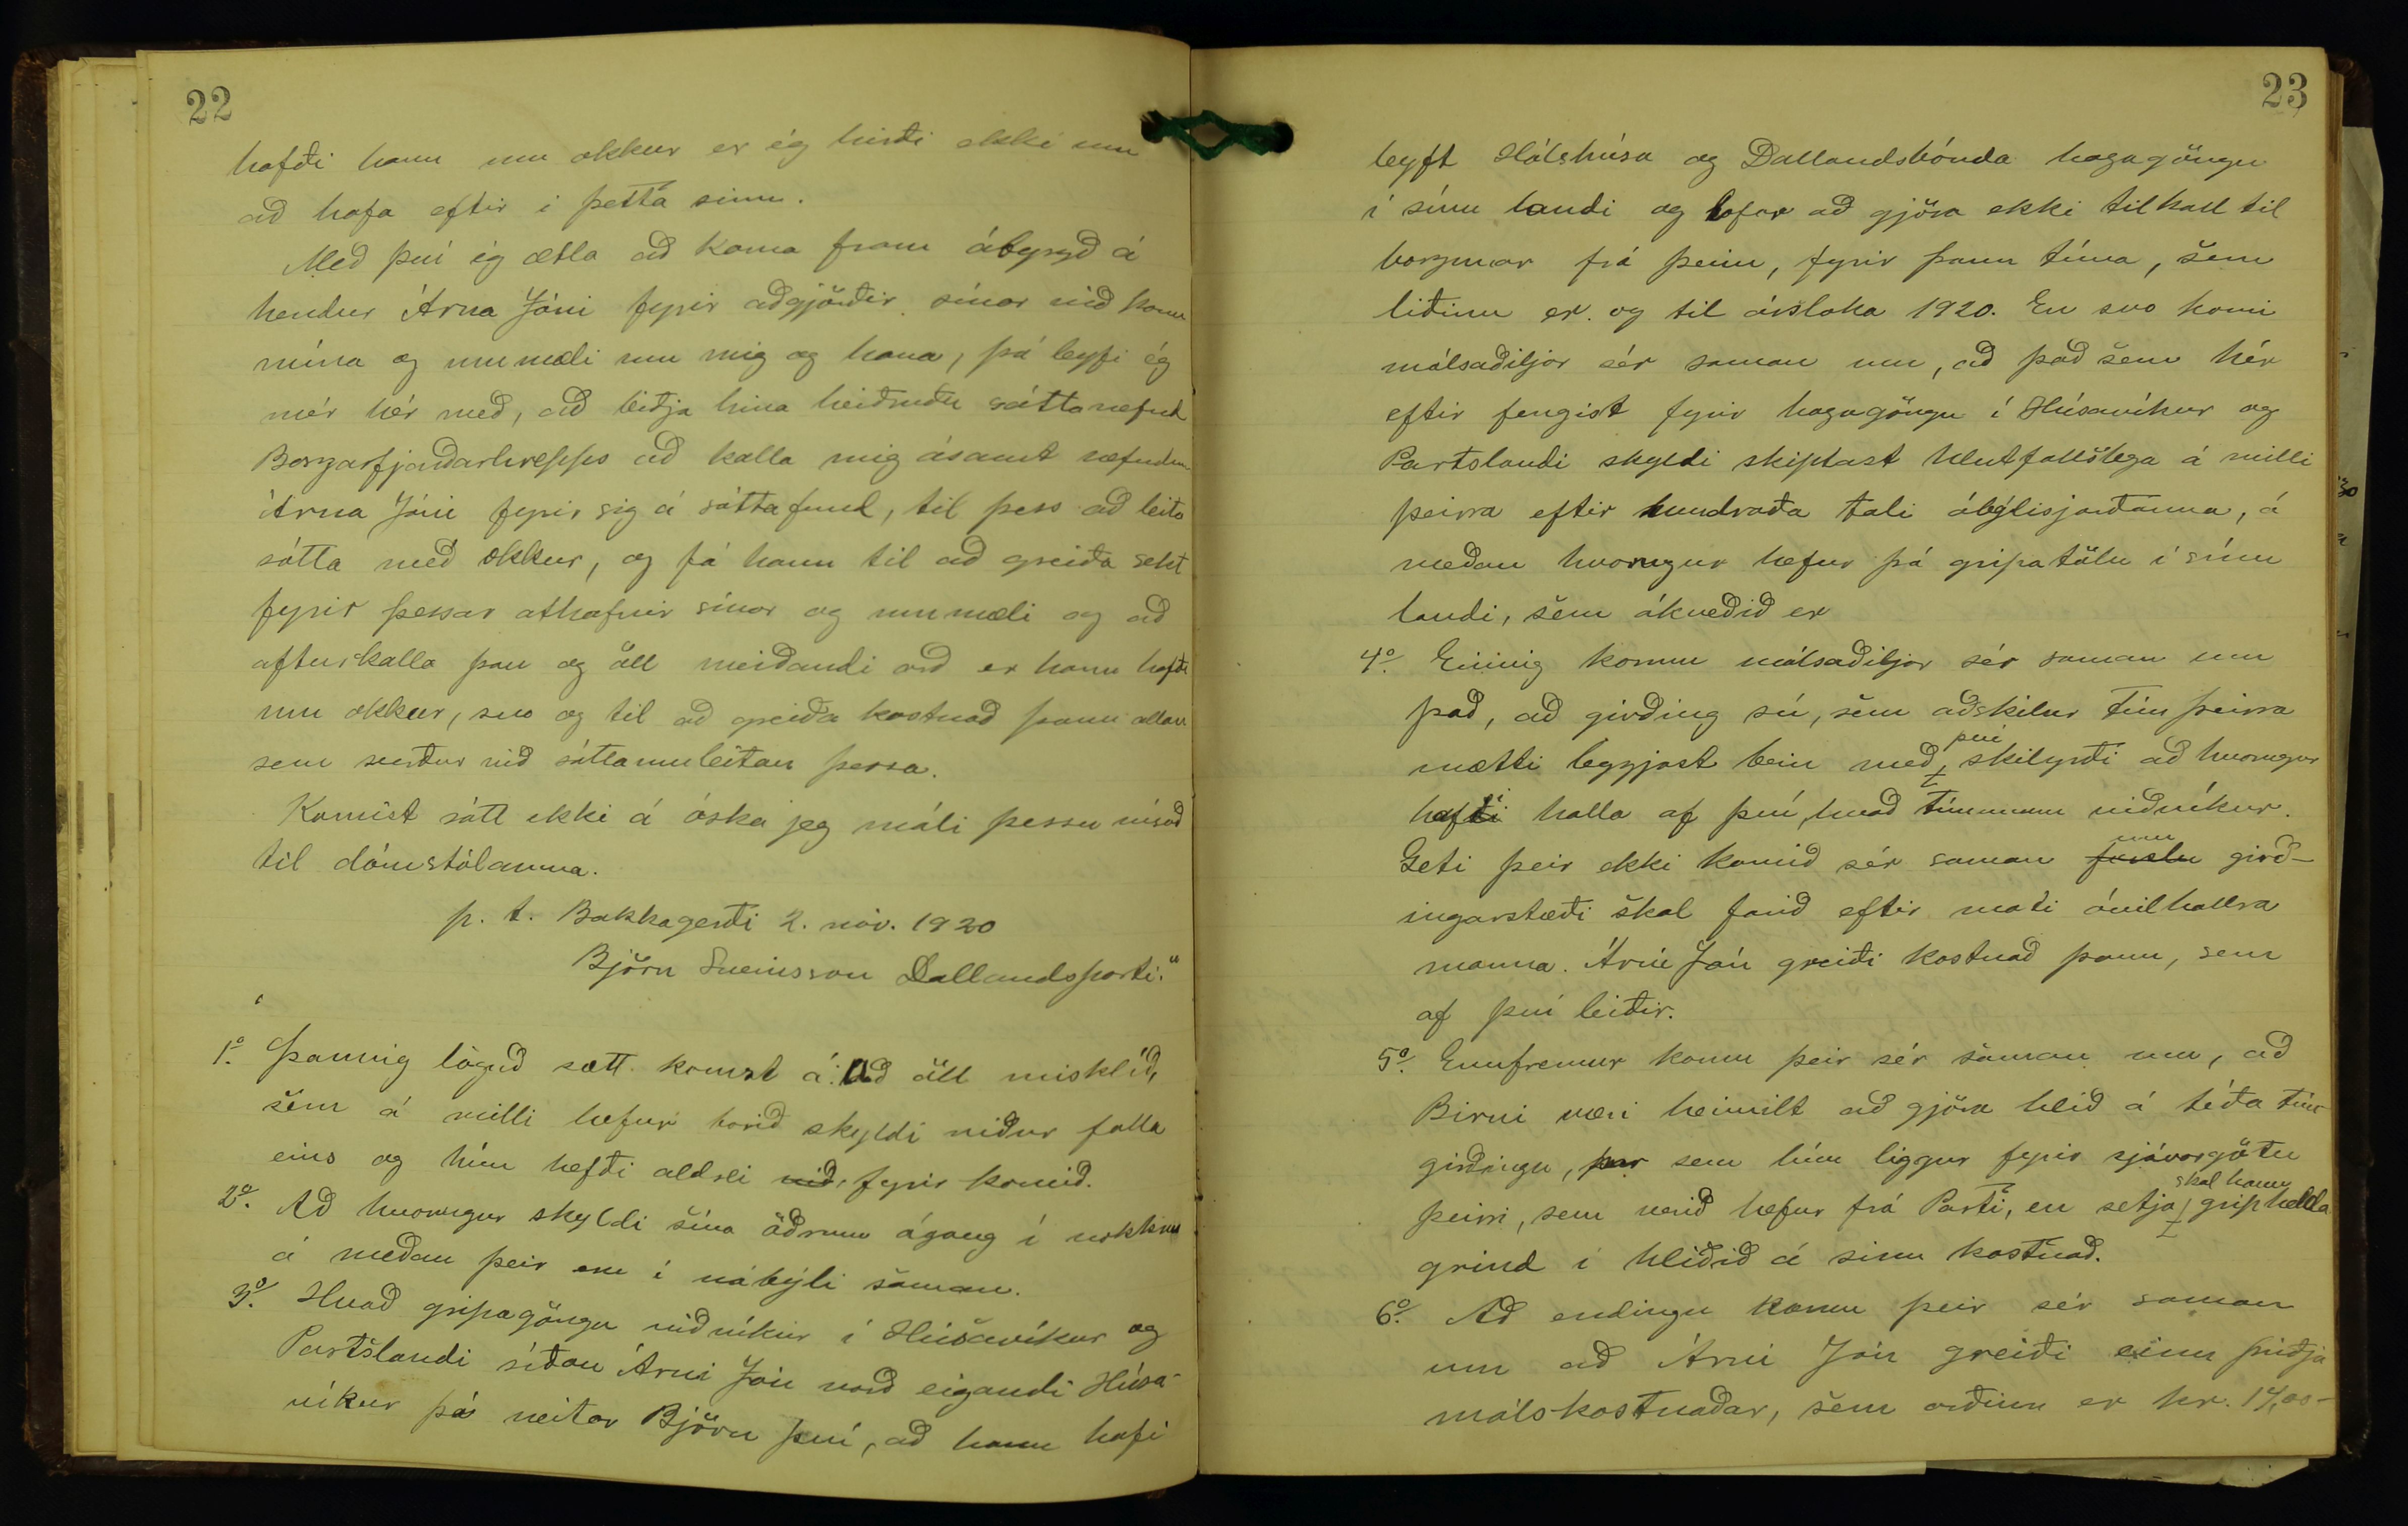 22
hafði hann um okkur er ég hirði ekki um
að hafa eftir í þetta sinn.
Með því ég ætla að koma fram ábyrgð á
hendur Árna Jóni fyrir aðgjörðir sínar við konu
mína og ummæli um mig og hana, þá leyfi ég
mér hér með, að biðja hina heiðruðu sáttanefnd
Borgarfjarðarhrepps að kalla mig ásamt nefndum
Árna Jóni fyrir sig á sáttafund, til þess að leita
sátta með okkur, og fá hann til að greiða sekt
fyrir þessar athafnir sínar og ummæli og að
afturkalla þau og öll meiðandi orð er hann hafði
um okkur, svo og til að greiða kostnað þann allan
sem verður við sáttaumleitan þessa.
Komist sátt ekki á óska jeg máli þessu vísað
til dómstólanna.
p. t. Bakkagerði 2. nóv. 1920
Björn Sveinsson Dallandsparti."
1º. Þannig löguð sætt komst á: Að öll misklíð,
sem á milli hefur borið skyldi niður falla
eins og hún hefði aldrei við fyrir komið.
2º. Að hvorugur skyldi sína öðrum ágang í nokkru
á meðan þeir eru í nábýli saman.
3º. Hvað gripagöngu viðvíkur í Húsavíkur og
Partslandi síðan Árni Jón varð eigandi Húsa-
víkur þá neitar Björn því, að hann hafi
23
leyft Hálshúsa og Dallandsbónda hagagöngu
í sínu landi og lofar að gjöra ekki tilkall til
borgunar frá þeim, fyrir þann tíma, sem
liðinn er og til ársloka 1920. En svo komi
málsaðiljar sér saman um, að það sem hér
eftir fengist fyrir hagagöngu í Húsavíkur og
Partslandi skyldi skiptast hlutfallslega á milli
þeirra eftir hundraða tali ábýlisjarðanna, á
meðan hvorugur hefur þá gripatölu í sínu
landi, sem ákveðið er
4º. Einnig komu málsaðiljar sér saman um
það, að girðing sú, sem aðskilur tún þeirra
mætti leggjast bein með því skilyrði að hvorugur
hafi halla af því, hvað túnunum viðvíkur.
Geti þeir ekki komið sér saman um girð-
ingarstæði skal farið eftir mati óvilhallra
manna. Árni Jón greiði kostnað þann, sem
af því leiðir.
5º. Ennfremur komu þeir sér saman um, að
Birni væri heimilt að gjöra hlið á téða tún
girðingu, þar sem hún liggur fyrir sjávargötu
þeirri, sem verið hefur frá Parti, en setja skal hann griphelda
grind í hliðið á sinn kostnað.
6º. Að endingu komu þeir sér saman
um að Árni Jón greiði einn þriðja
málskostnaðar, sem orðinn er kr. 17,00-